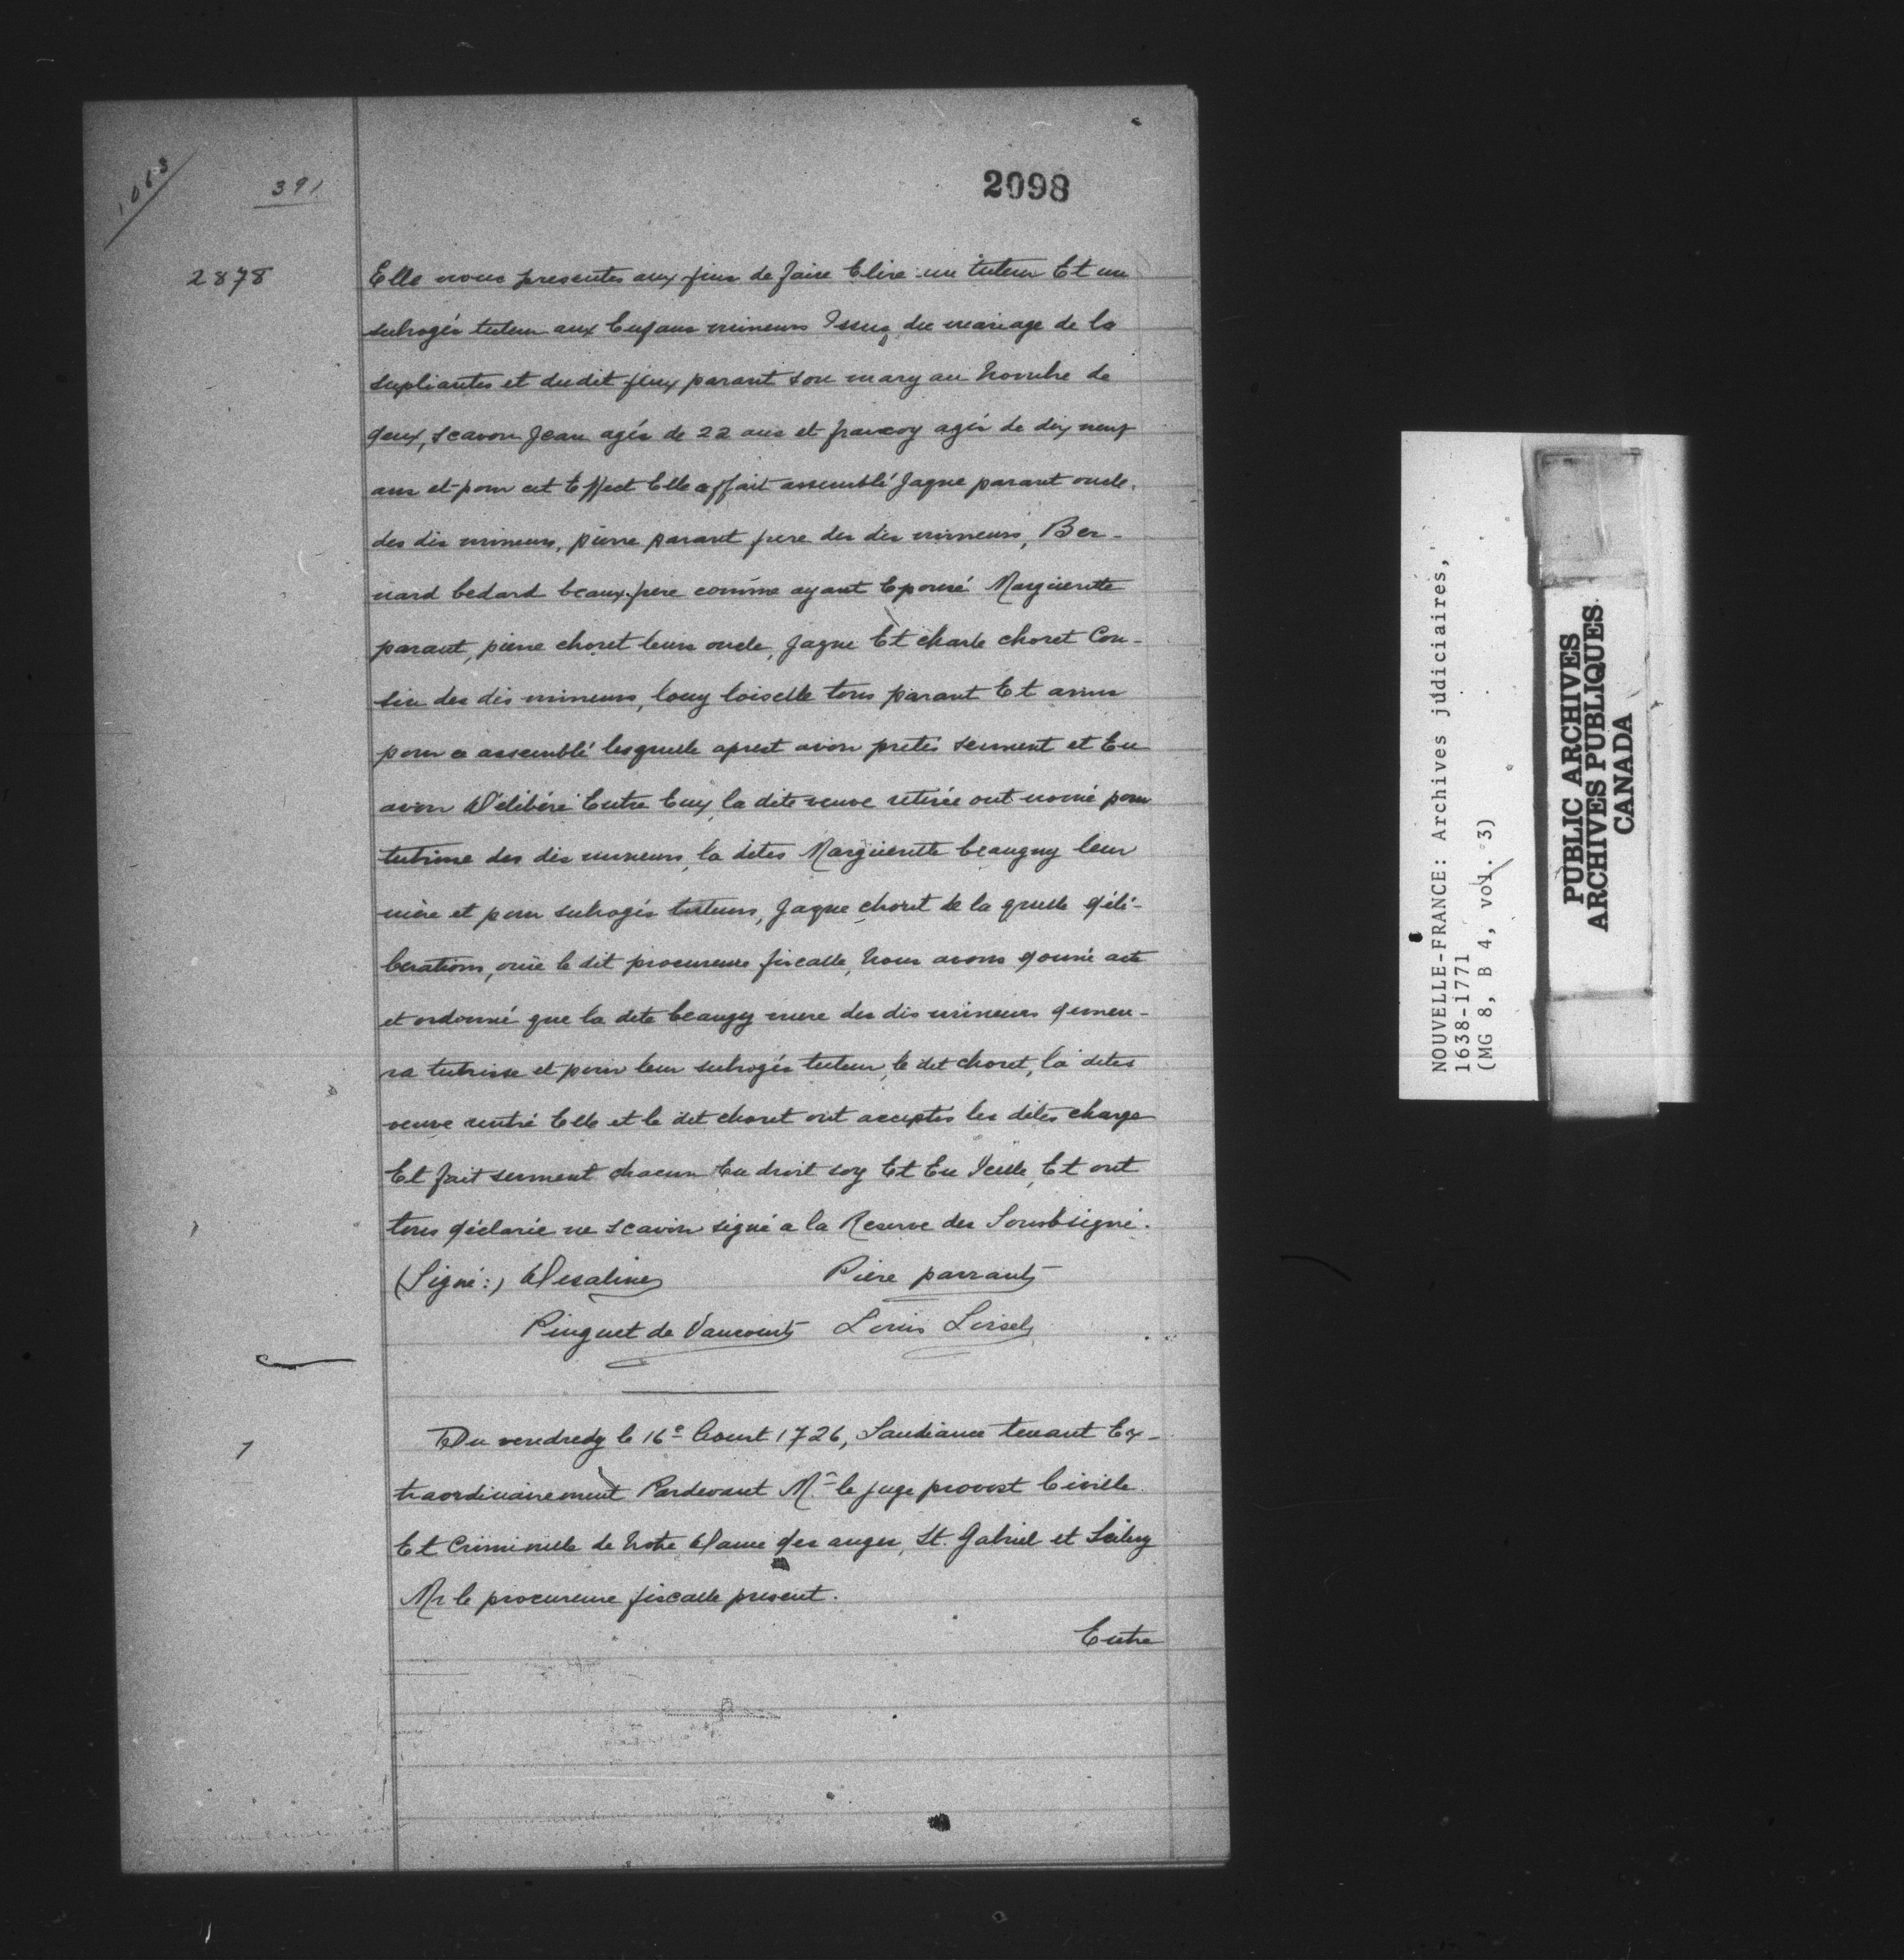 1063
391
2098
2878
Elle nous presentes aux fins de faire Elire un tuteur Et un
subrogés tuteur aux Enfans mineurs Issus du mariage de la
supliantes et dudit feux parant son mary au Nombre de
deux, scavoir Jean agés de 22 ans et francoy agés de dix neuf
ans et pour cet Effect Elle affait assemblé Jaque parant oncle
des dis mineurs, pierre parant frere des dis mineurs, Ber-
nard bedard beaux-frere comme ayant Epousé Margueritte
parant, pierre choret leurs oncle, Jaque Et charle choret Cou-
sin des dis mineurs, louy loiselle tous parant Et amis
pour ce assemblé lesquelle aprest avoir pretés serment et En
avoir Délibéré Entre Eux, la dite veuve retirée ont nomé pour
tutrisse des dis mineurs, la dites Margueritte beaugny leur
mère et pour subrogés tuteurs, Jaque choret de la quelle déli-
berations, ouïe le dit procureure fiscalle, Nous avons donné acte
et ordonné que la dite beaugy mere des dis mineurs demeu-
ra tutrisse et pour leur subrogés tuteur, le dit choret, la dites
veuve rentré Elle et le dit choret ont acceptés les dites charge
Et fait serment chacun En droit soy Et En Icelle, Et ont
tous déclarée ne scavoir signé a la Reserve des Soubsigné.
(Signé:) Desalines Piere parrant
Pinguet de Vaucours Louis Loisel
1
Du vendredy le 16e Aoust 1726, Laudiance tenant Ex-
traordinairement Pardevant Mr le juge provost Civille
Et Criminelle de Notre Dame des anges, St. Gabriel et Sillery
Mr le procureure fiscalle present.
Entre
NOUVELLE-FRANCE: Archives judiciaires,
1638-1771
(MG 8, B 4, vol. 3)
PUBLIC ARCHIVES
ARCHIVES PUBLIQUES
CANADA